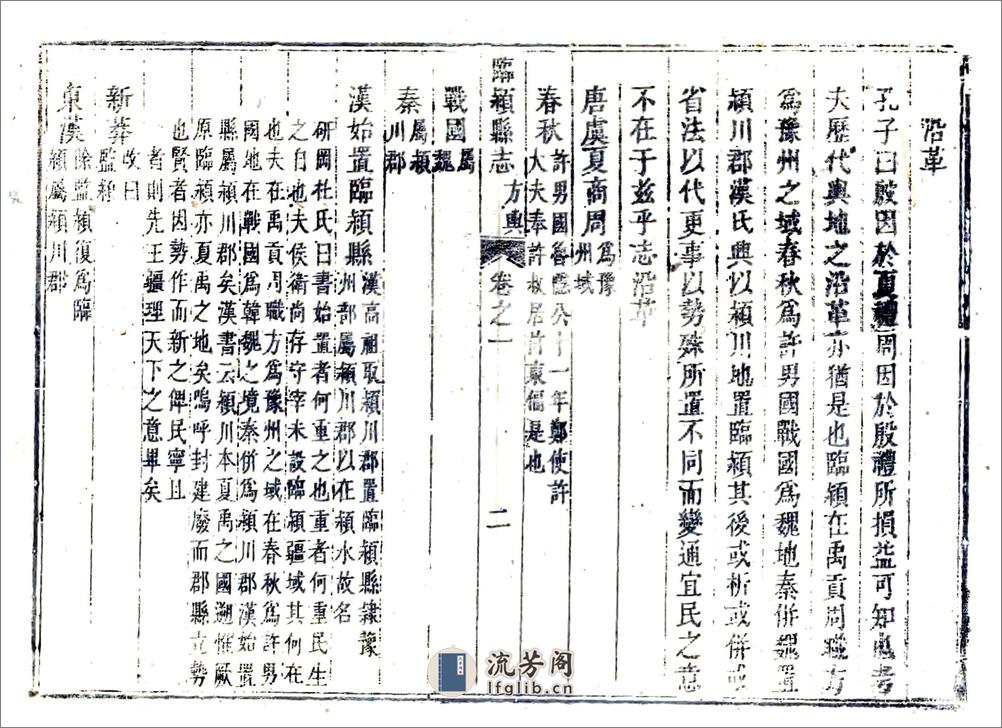 沿革
孔子曰殷因於夏禮周因於殷禮所損益可知也考
夫歷代輿地之沿革亦猶是也臨潁在禹貢周職方
爲豫州之域春秋爲許男國戰國爲魏地秦併魏置
潁川郡漢氏興以潁川地置臨潁其後或析或併或
省法以代更事以勢殊所置不同而變通宜民之意
不在于兹乎志沿革
唐虞夏商周爲豫
州域
春秋許男國魯隱公十一年鄭使許
大夫奉許叔居許東偏是也
臨潁縣志 方輿 卷之一 二
戰國屬
魏
秦屬潁
川郡
漢始置臨潁縣漢高祖取潁川郡置臨潁縣隸豫
州部屬潁川郡以在潁水故名
研岡杜氏曰書始置者何重之也重者何重民生
之自也夫侯衛尚存守宰未設臨潁疆域其何在
也夫在禹貢周職方爲豫州之域在春秋爲許男
國地在戰國爲韓魏之境秦併爲潁川郡漢始置
縣屬潁川郡矣漢書云潁川本夏禹之國遡惟厥
原臨潁亦夏禹之地矣嗚呼封建廢而郡縣立勢
也賢者因勢作而新之俾民寧且
者則先王疆理天下之意畢矣
新莽改曰
監潁
東漢除監潁復爲臨
潁屬潁川郡
流芳阁
lfglib.cn